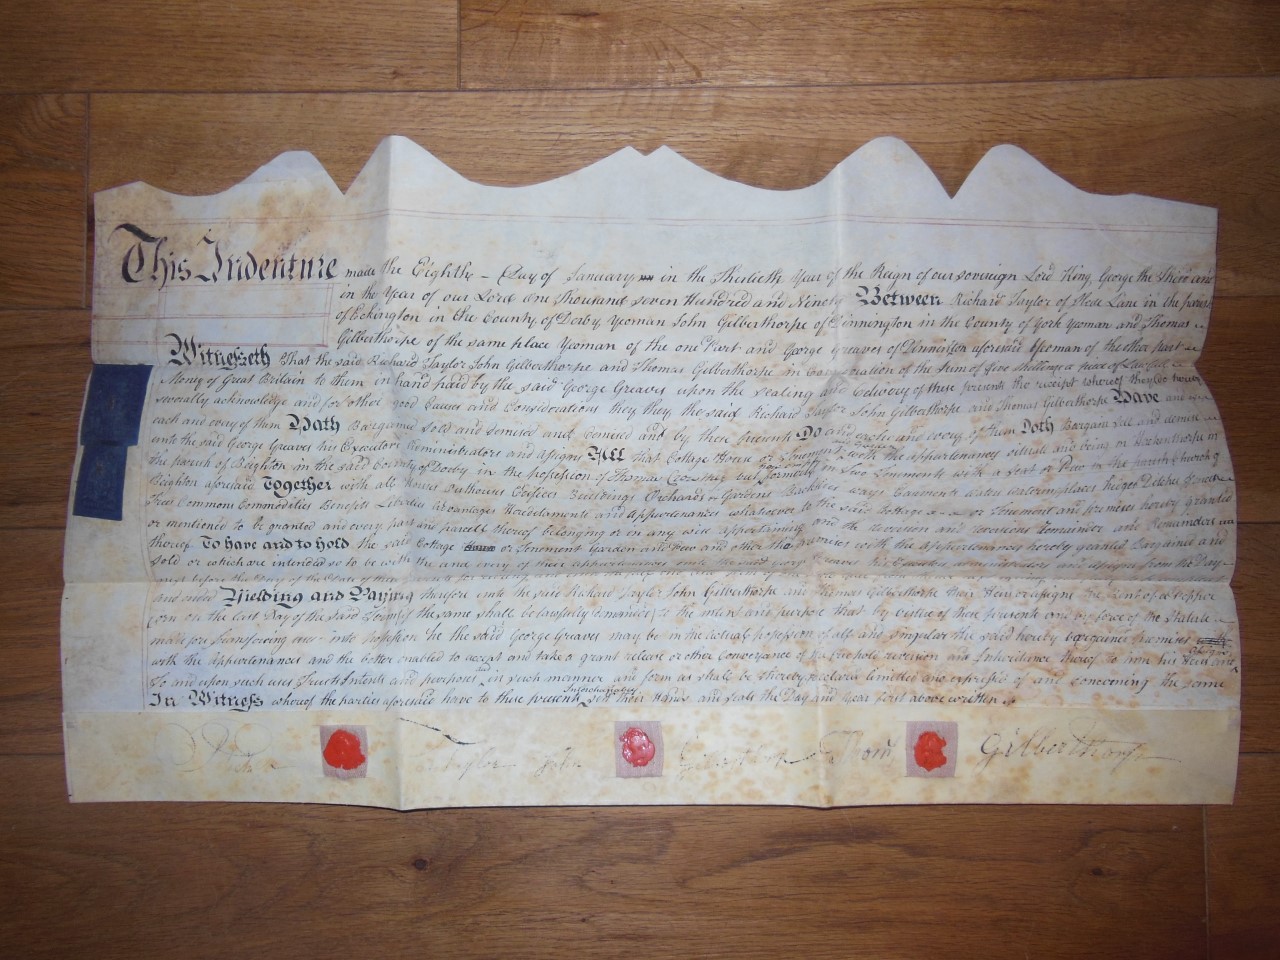 This Indenture made the Eighth Day of January in the Thirtieth Year of the Reign of our Sovereign Lord King George the Third and
in the Year of our Lord One Thousand seven Hundred and Ninety Between Richard Taylor of Lane in the parish
of Eckington in the County of Derby Yeoman John Gilberthorpe of Dinnington in the County of York Yeoman and Thomas
Gilberthorpe of the same place Yeoman of the one Part and George Greaves of Dinnington aforesaid Yeoman of the other part
Witnesseth That the said Richard Taylor John Gilberthorpe and Thomas Gilberthorpe in Consideration of the Sum of five shillings a piece of Lawful
Money of Great Britain to them in hand paid by the said George Greaves upon the sealing and delivery of these presents the receipt whereof they do hereby
severally acknowledge and for other good Causes and Considerations they the said Richard Taylor John Gilberthorpe and Thomas Gilberthorpe Have and
each and every of them Hath Bargained Sold and demised and by these Presents Do and each and every of them Doth Bargain sell and demise
unto the said George Greaves his Executors Administrators and Assigns All that Cottage House or Tenement with the appurtenances situate and being in Hackenthorpe in
the parish of Beighton in the said County of Derby in the possession of Thomas but formerly in two Tenements with a Seat or Pew in the parish Church of
Beighton aforesaid Together with all Houses Outhouses Edifices Buildings Orchards Gardens Backsides ways Easements waters watercourses Hedges Ditches
Trees Commons Commodities Benefits Liberties Advantages Hereditaments and Appurtenances whatsoever to the said Cottage or Tenement and premises hereby granted
or mentioned to be granted and every part and parcel thereof belonging or in any wise appertaining and the reversion and reversions Remainder and Remainders
thereof To have and to hold the said Cottage or Tenement Garden and Pew and other the premises with the appurtenances hereby granted Bargained and
Sold or which are intended so to be with the and every of their appurtenances unto the said George Greaves his Executors administrators and assigns from the Day
next before the Day of the Date of these
and ended Yielding and Paying therefore unto the said Richard Taylor John Gilberthorpe and Thomas Gilberthorpe their Heirs or assigns the Rent of a Pepper
Corn on the last Day of the said Term if the same shall be lawfully demanded to the intent and purpose that by virtue of these presents and by force of the Statute
made for transferring uses into possession he the said George Greaves may be in the Actual possession of all and singular the said hereby bargained premises
with the Appurtenances and the better enabled to accept and take a grant release or other Conveyance of the freehold reversion and Inheritance thereof to him his Heirs and Assigns
To and upon such uses Trusts Intents and purposes and in such manner and form as shall be thereby declared limitted and expressed of and concerning the same
In Witness whereof the parties aforesaid have to these presents Interchangeably sett their Hands and seals the Day and Year first above written
Taylor John Gilberthorpe Thos Gilberthorpe